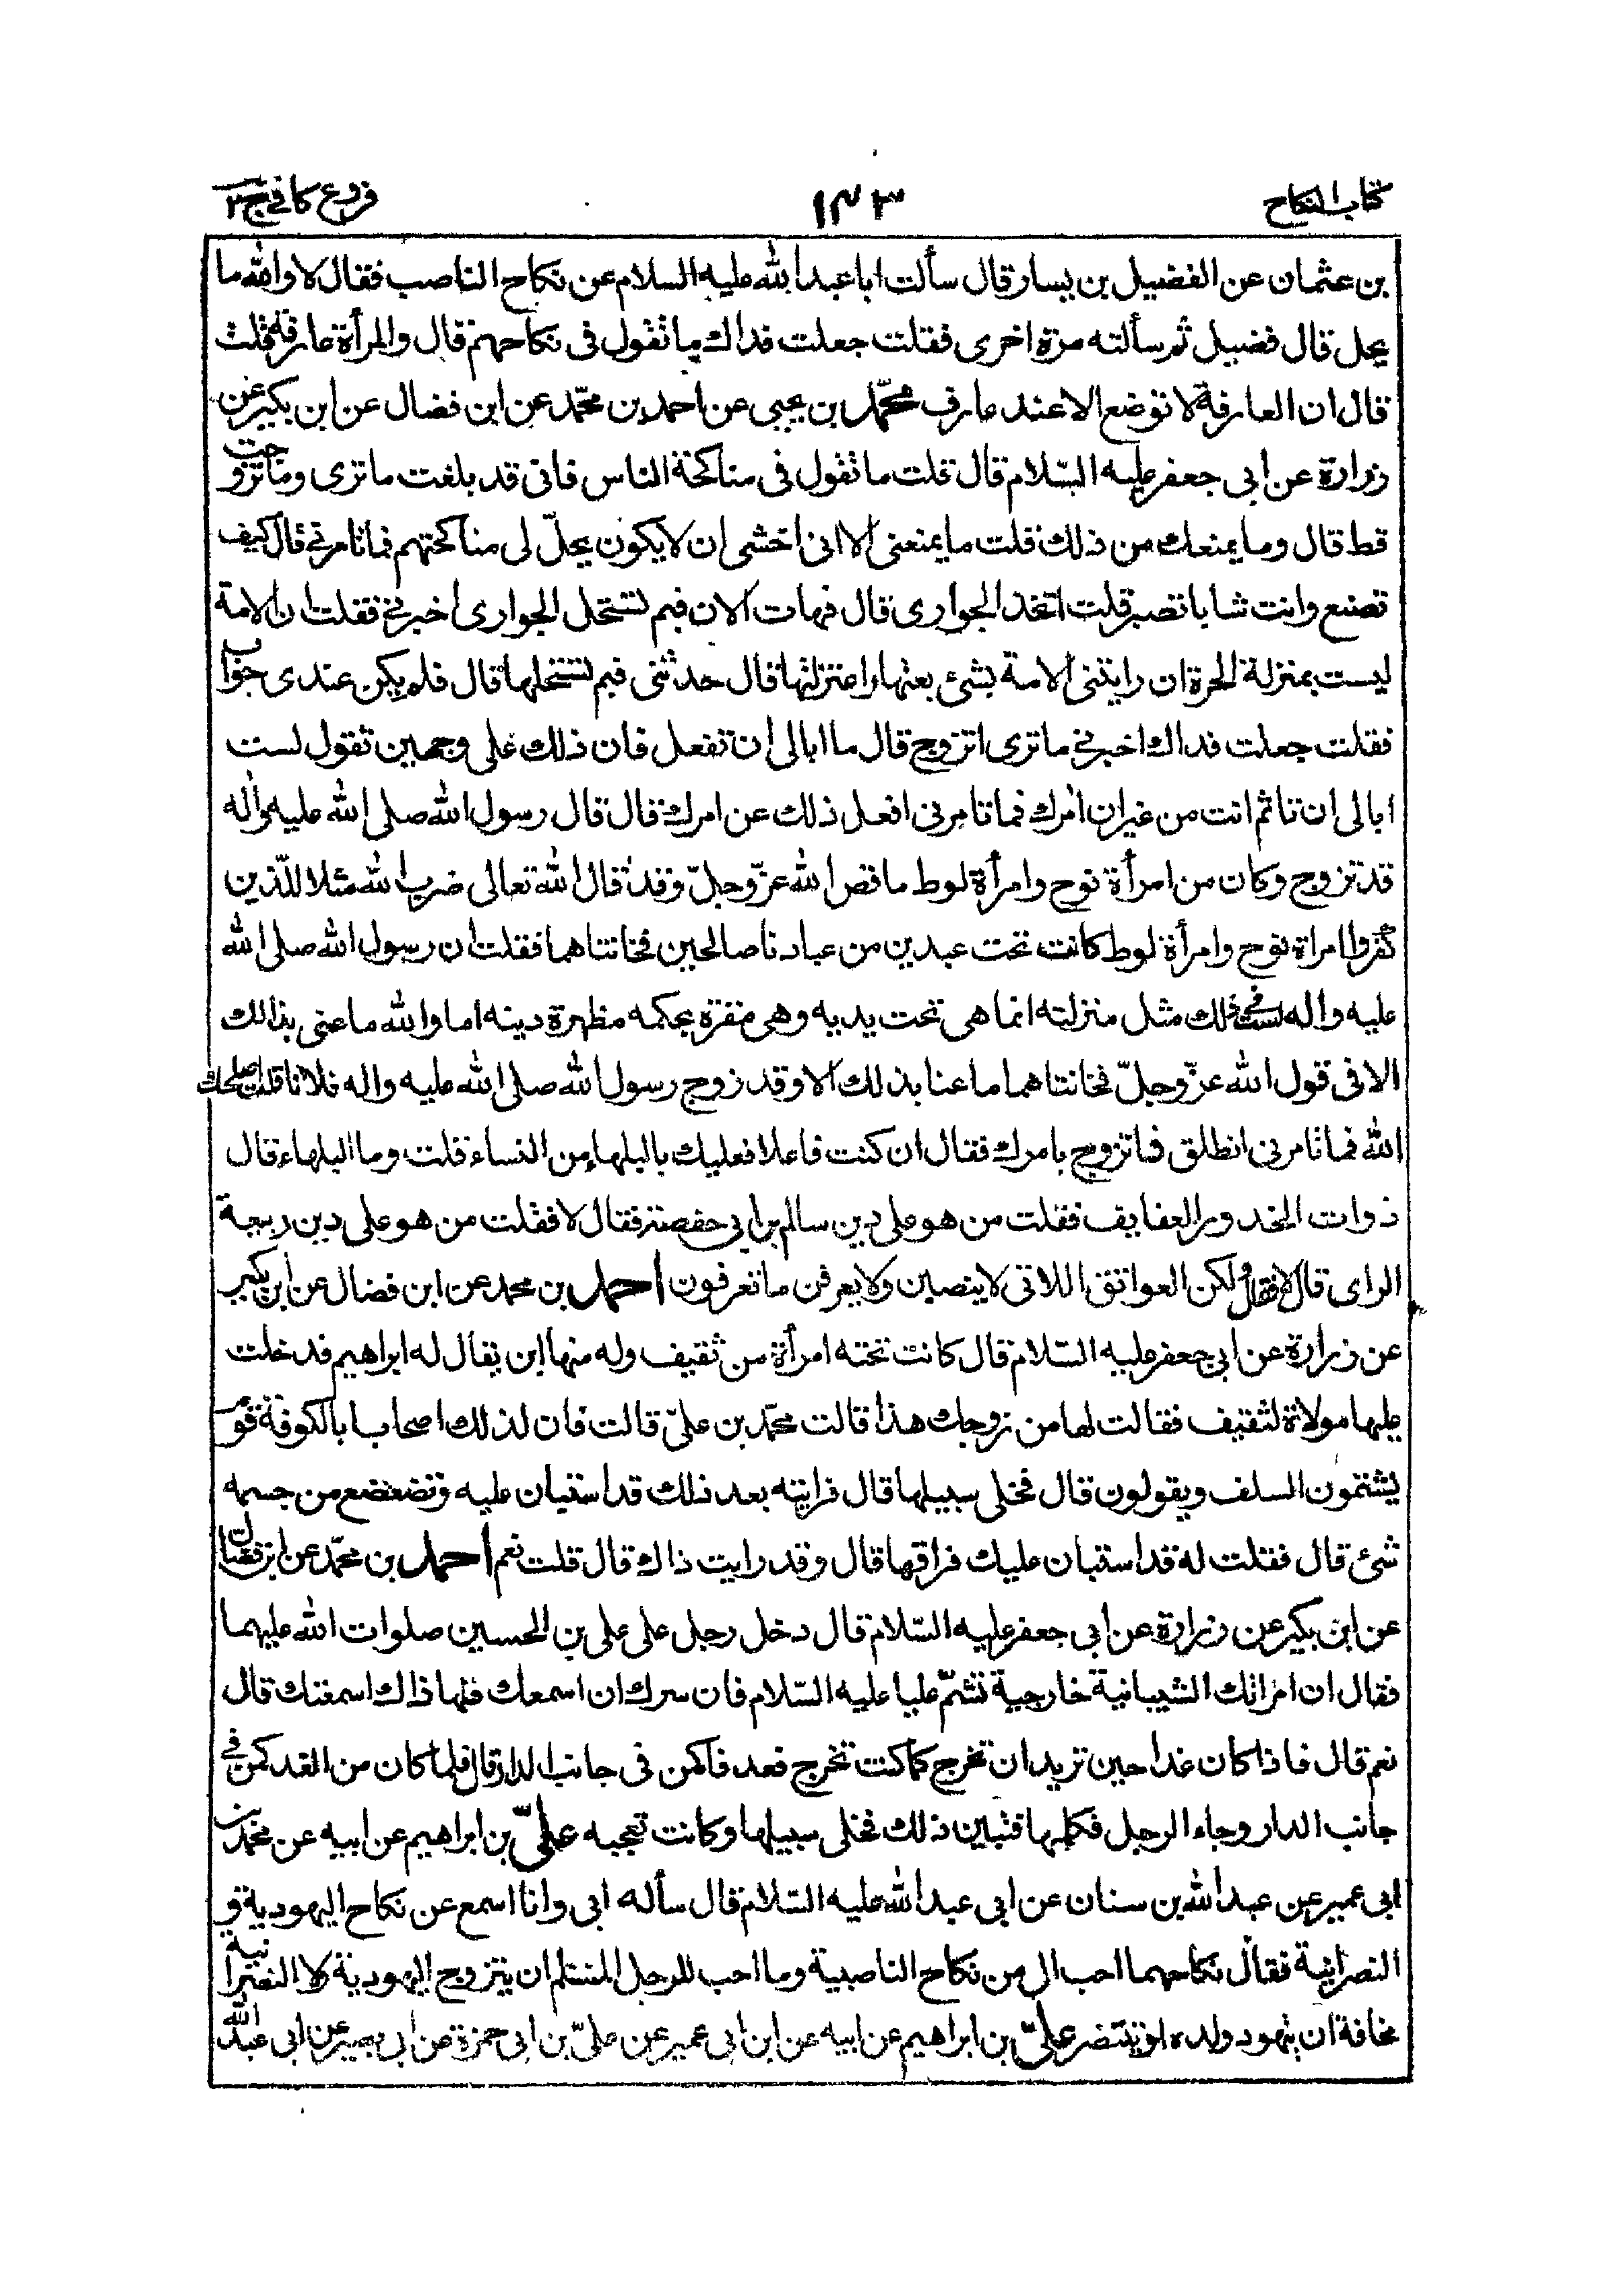 كتاب النكاح
١٤٣
فروع كافي ج٢
بن عثمان عن الفضيل بن يسار قال سألت ابا عبد الله عليه السلام عن نكاح الناصب فقال لا والله ما
يحل قال فضيل ثم سألته مرة اخرى فقلت جعلت فداك ما تقول فى نكاحهم قال والمرأة عارفة قلت
قال ان العارفة لا توضع الا عند عارف محمّد بن يحيى عن احمد بن محمّد عن ابن فضال عن ابن بكير عن
زرارة عن ابى جعفر عليه السّلام قال قلت ما تقول فى مناكحة الناس فانى قد بلغت ما ترى وما تزوجت
قط قال وما يمنعك من ذلك قلت ما يمنعنى الا انى اخشى ان لا يكون يحلّ لى مناكحتهم فما تامرنى قال كيف
تصنع وانت شاب اتصبر قلت اتخذ الجوارى قال فهات الان فبم تستحل الجوارى اخبرنى فقلت ان الامة
ليست بمنزلة الحرة ان رابتنى الامة بشئ بعتها او اعتزلتها قال حدثنى فبم تستحلها قال فلم يكن عندى جواب
فقلت جعلت فداك اخبرنى ما ترى اتزوج قال ما ابالى ان تفعل فان ذلك على وجهين تقول لست
ابالى ان تاثم انت من غير ان امرك فما تامرنى افعل ذلك عن امرك قال قال رسول الله صلى الله عليه واله
قد تزوج وكان من امرأة نوح وامرأة لوط ما قص الله عزّ وجلّ وقد قال الله تعالى ضرب الله مثلا للّذين
كفروا امراة نوح وامرأة لوط كانت تحت عبدين من عبادنا صالحين فخانتاهما فقلت ان رسول الله صلى الله
عليه واله لست فى ذلك مثل منزلته انما هى تحت يديه وهى مقرة بحكمه مظهرة دينه اما والله ما عنى بذالك
الا فى قول الله عزّ وجلّ فخانتاهما ما عنا بذلك الا وقد زوج رسول الله صلى الله عليه واله فلانا قلت اصلحك
الله فما تامرنى انطلق فاتزوج بامرك فقال ان كنت فاعلا فعليك بالبلهاء من النساء قلت وما البلهاء قال
ذوات الخدور العفايف فقلت من هو على دين سالم بن ابى حفصة فقال لا فقلت من هو على دين ربيعة
الراى قال لا فقال ولكن العواتق اللاتى لا ينصبن ولا يعرفن ما تعرفون احمد بن محمد عن ابن فضال عن ابن بكير
عن زرارة عن ابى جعفر عليه السّلام قال كانت تحته امرأة من ثقيف وله منها ابن يقال له ابراهيم فدخلت
عليها مولاة لثقيف فقالت لها من زوجك هذا قالت محمّد بن علىّ قالت فان لذلك اصحابا بالكوفة قوم
يشتمون السلف ويقولون قال فخلى سبيلها قال فرايته بعد ذلك قد استبان عليه وتضعضع من جسمه
شئ قال فقلت له قد استبان عليك فراقها قال وقد رايت ذاك قال قلت نعم احمد بن محمّد عن ابن فضال
عن ابن بكير عن زرارة عن ابى جعفر عليه السّلام قال دخل رجل على على بن الحسين صلوات الله عليهما
فقال ان امراتك الشيبانية خارجية تشتم عليا عليه السّلام فان سرك ان اسمعك منها ذاك اسمعتك قال
نعم قال فاذا كان غدا حين تريد ان تخرج كما كنت تخرج فعد فاكمن فى جانب الدار قال فلما كان من الغد كمن فى
جانب الدار وجاء الرجل فكلمها فتبين ذلك فخلى سبيلها وكانت تعجبه علىّ بن ابراهيم عن ابيه عن محمد بن
ابى عمير عن عبد الله بن سنان عن ابى عبد الله عليه السّلام قال سأله ابى وانا اسمع عن نكاح اليهودية و
النصرانية فقال نكاحهما احب الى من نكاح الناصبية وما احب للرجل المسلم ان يتزوج اليهودية ولا النصرانية
مخافة ان يتهود ولده او يتنصر علىّ بن ابراهيم عن ابيه عن ابن ابى عمير عن علىّ بن ابى حمزة عن ابى بصير عن ابى عبد الله